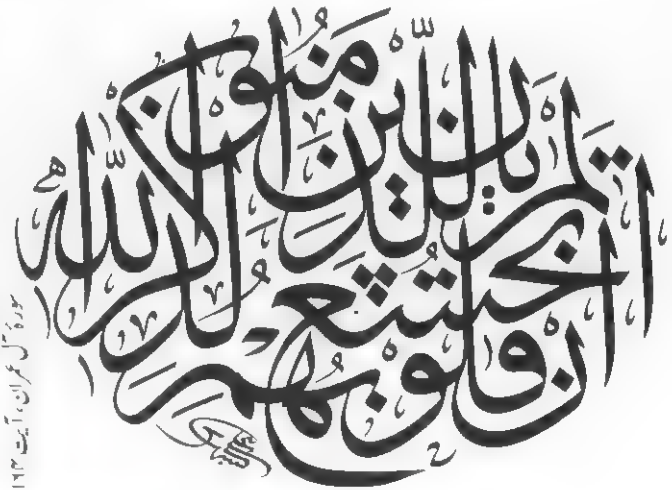 ألم يأن للذين آمنوا أن تخشع قلوبهم لذكر الله
سورۂ آل عمران، آیت